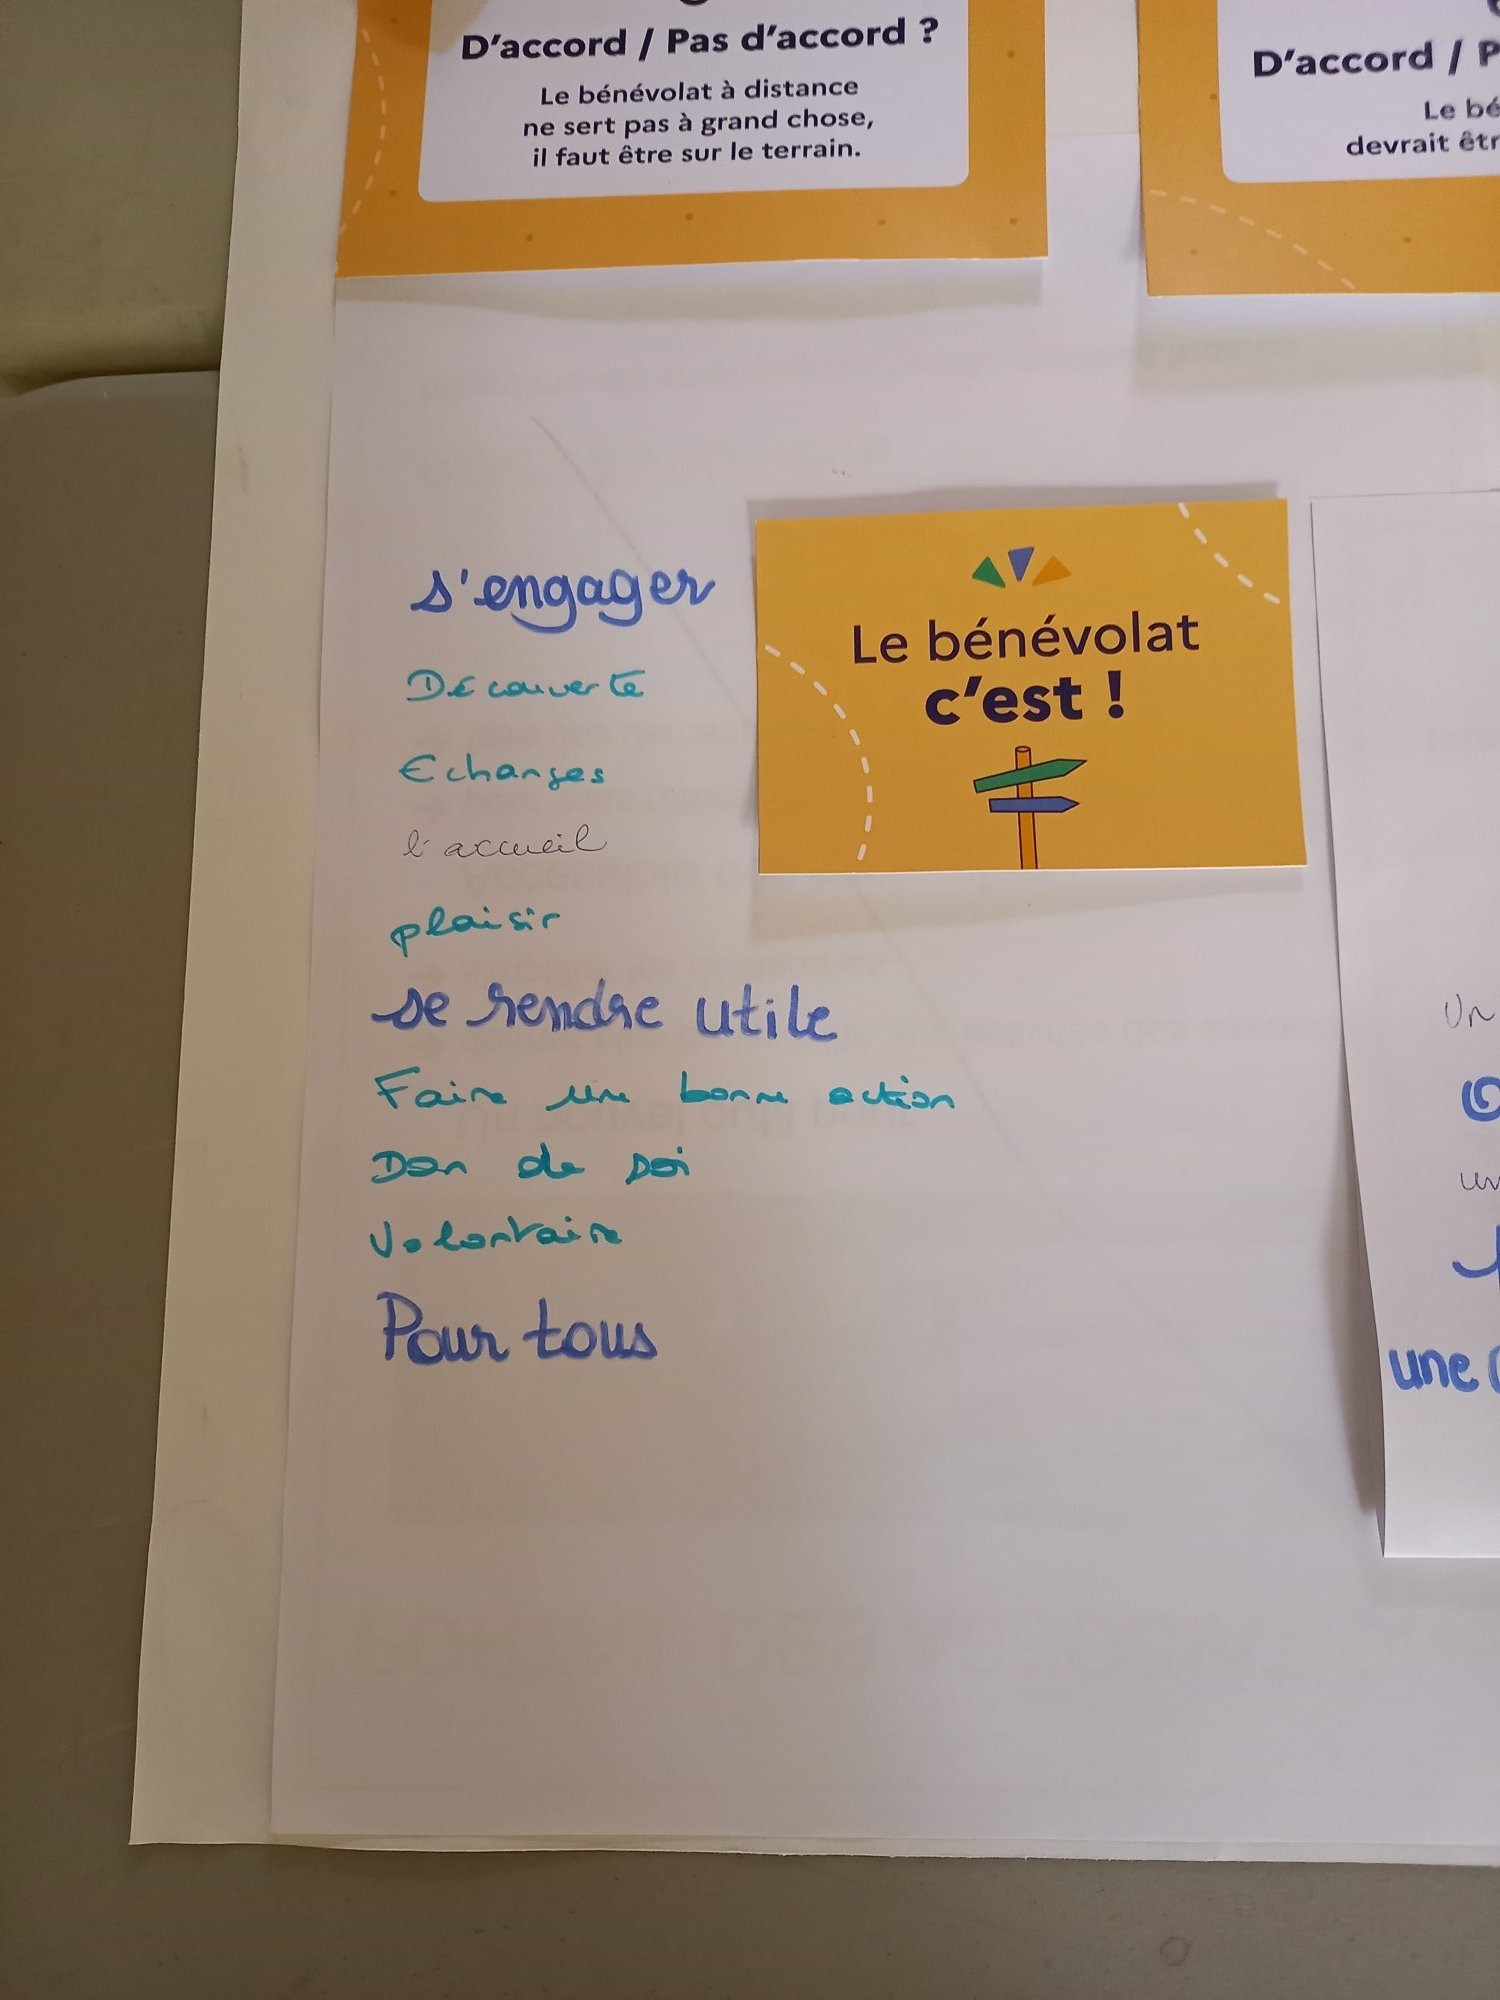 D'accord / Pas d'accord ?
Le bénévolat à distance
ne sert pas à grand chose,
il faut être sur le terrain.
D'accord / P
Le bé
devrait êtr
Le bénévolat
c'est !
s'engager
Découverte
Echanges
l'accueil
plaisir
se rendre utile
Faire une bonne action
Don de soi
Volontaire
Pour tous
Un
une